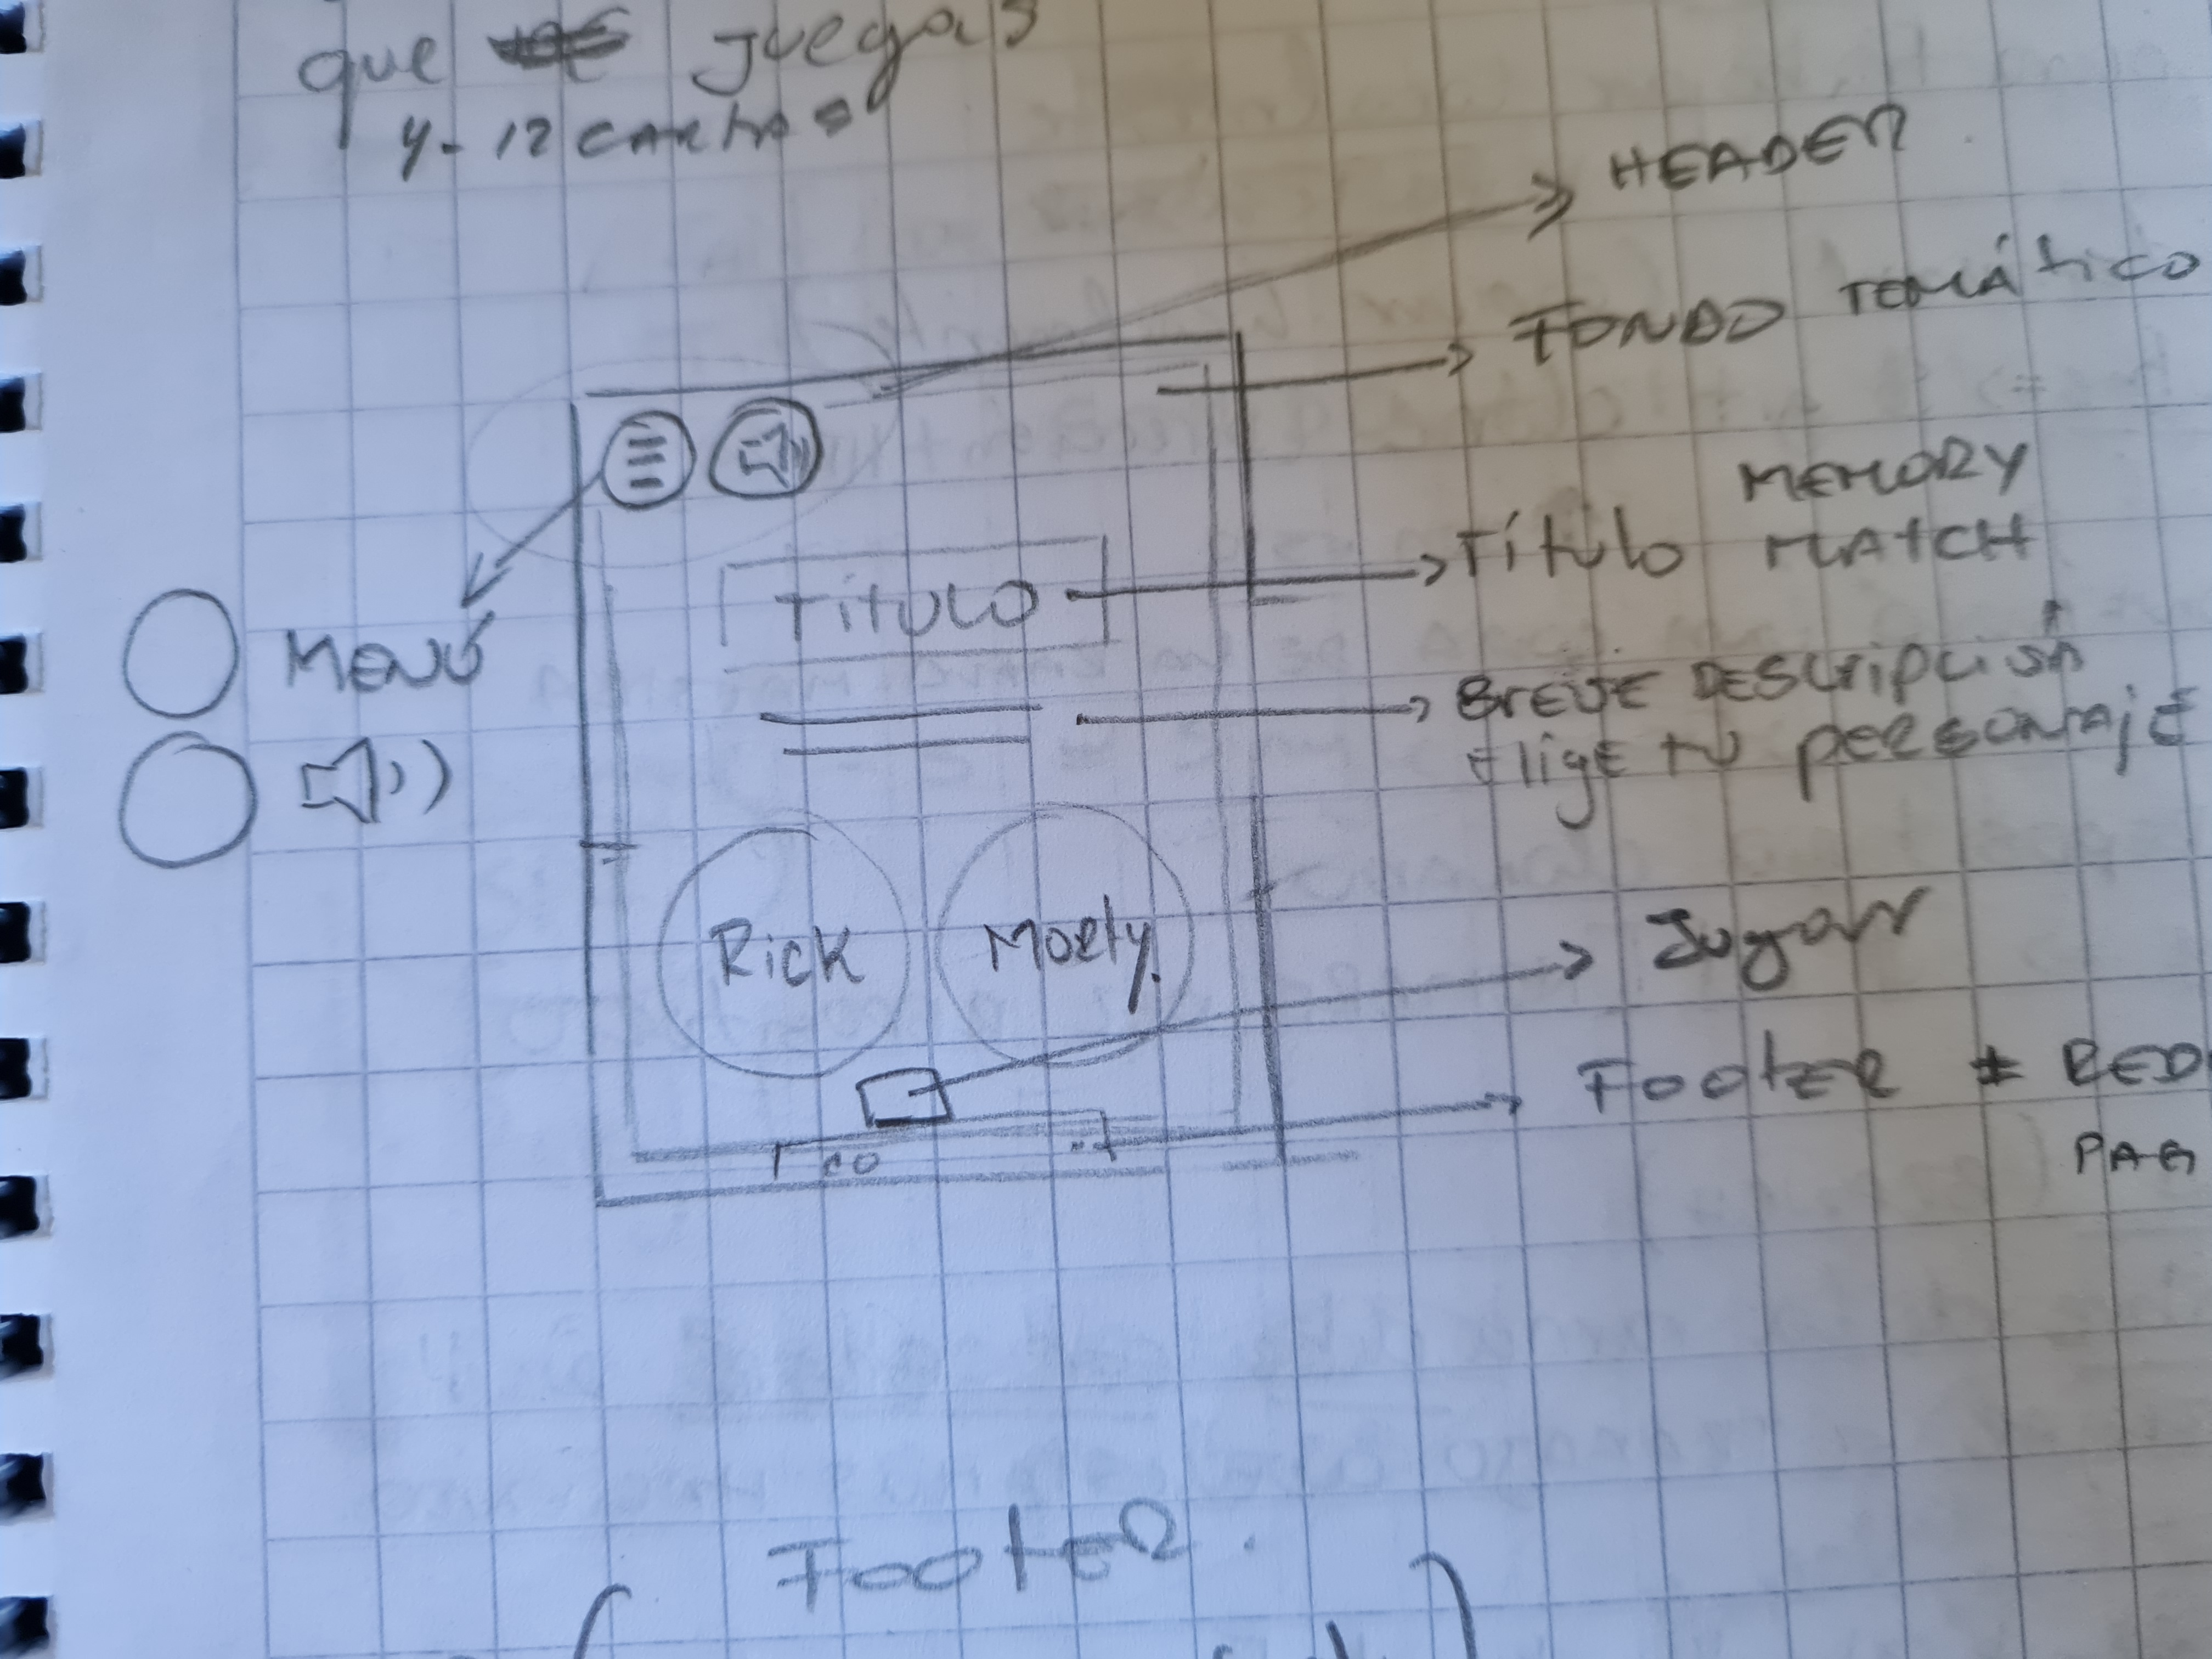 que juegas
4-12 CARTAS
HEADER
FONDO TEMÁTICO
MEMORY
Título MATCH
TÍTULO
MENÚ
BREVE DESCRIPCIÓN
Elige tu PERSONAJE
Rick
Morty.
Jugar
FOOTER * RED
PAG
FOOTER.